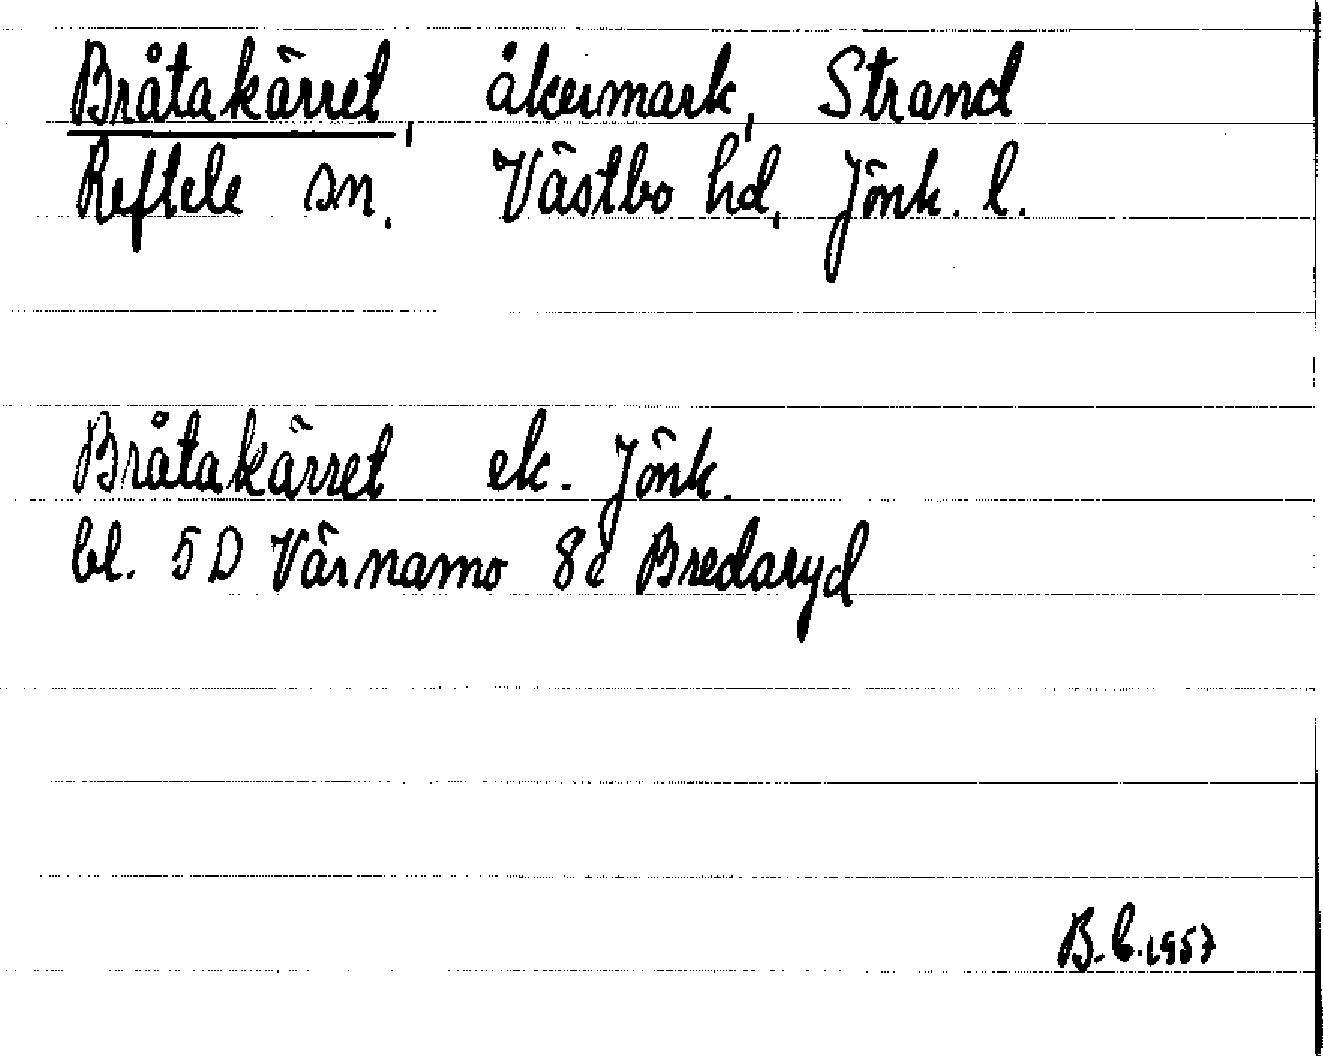 Bråtakärret, åkermark, Strand
Reftele sn. Västbo hd, Jönk. l.
Bråtakärret ek. Jönk.
bl. 5D Värnamo 8d Bredaryd
B.C. 1957